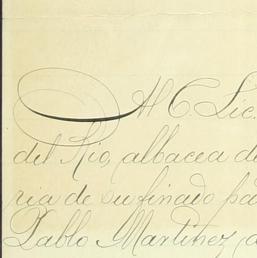 Al C. Lic.
del Rio, albacea de
ria de su finado pa
Pablo Martinez, a